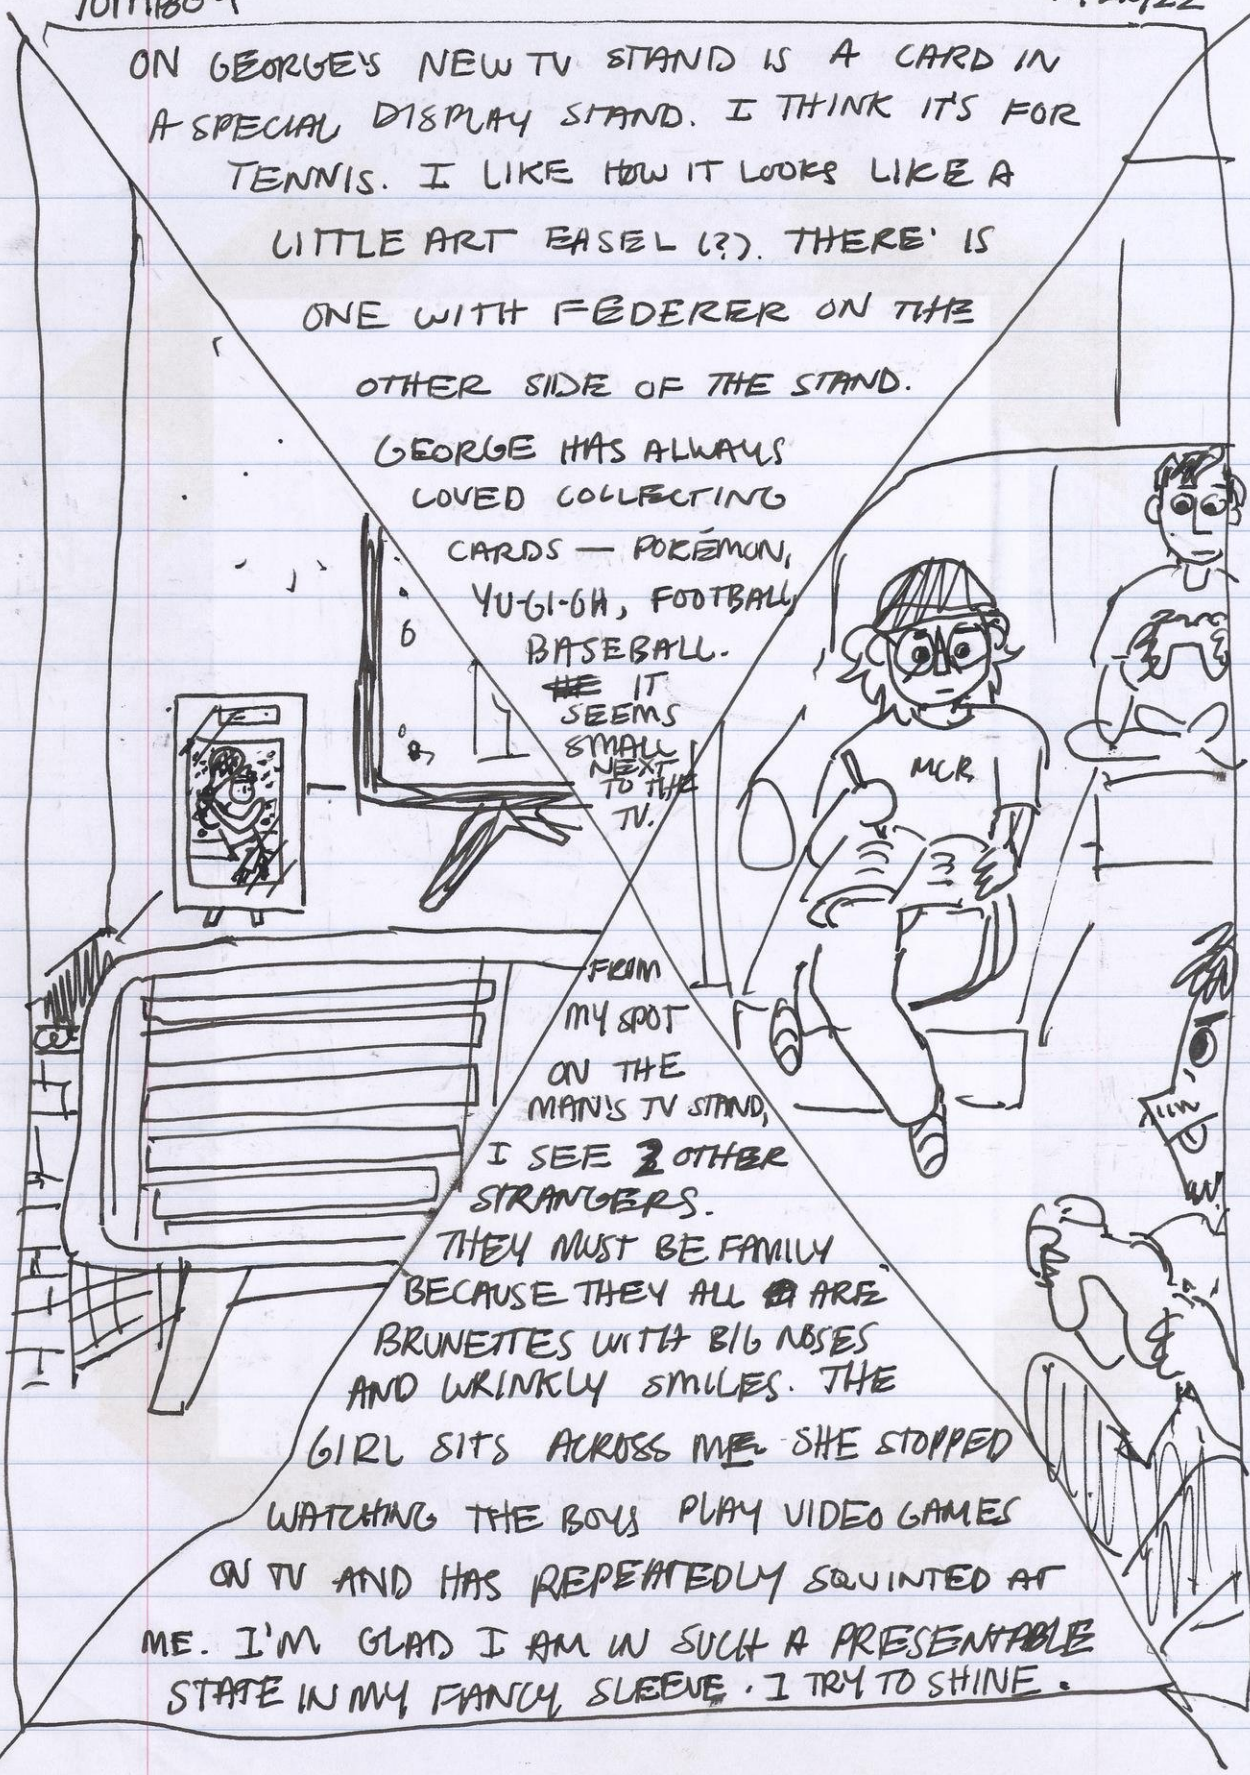 ON GEORGE'S NEW TV STAND IS A CARD IN
A SPECIAL DISPLAY STAND. I THINK IT'S FOR
TENNIS. I LIKE HOW IT LOOKS LIKE A
LITTLE ART EASEL (?). THERE' IS
ONE WITH FEDERER ON THE
OTHER SIDE OF THE STAND.
GEORGE HAS ALWAYS
LOVED COLLECTING
CARDS — POKÉMON,
YU-GI-OH, FOOTBALL,
BASEBALL.
HE IT
SEEMS
SMALL
NEXT
TO THE
TV.
MCR
FROM
MY SPOT
ON THE
MAN'S TV STAND,
I SEE 2 OTHER
STRANGERS.
THEY MUST BE FAMILY
BECAUSE THEY ALL ARE
BRUNETTES WITH BIG NOSES
AND WRINKLY SMILES. THE
GIRL SITS ACROSS ME. SHE STOPPED
WATCHING THE BOYS PLAY VIDEO GAMES
ON TV AND HAS REPEATEDLY SQUINTED AT
ME. I'M GLAD I AM IN SUCH A PRESENTABLE
STATE IN MY FANCY SLEEVE. I TRY TO SHINE.